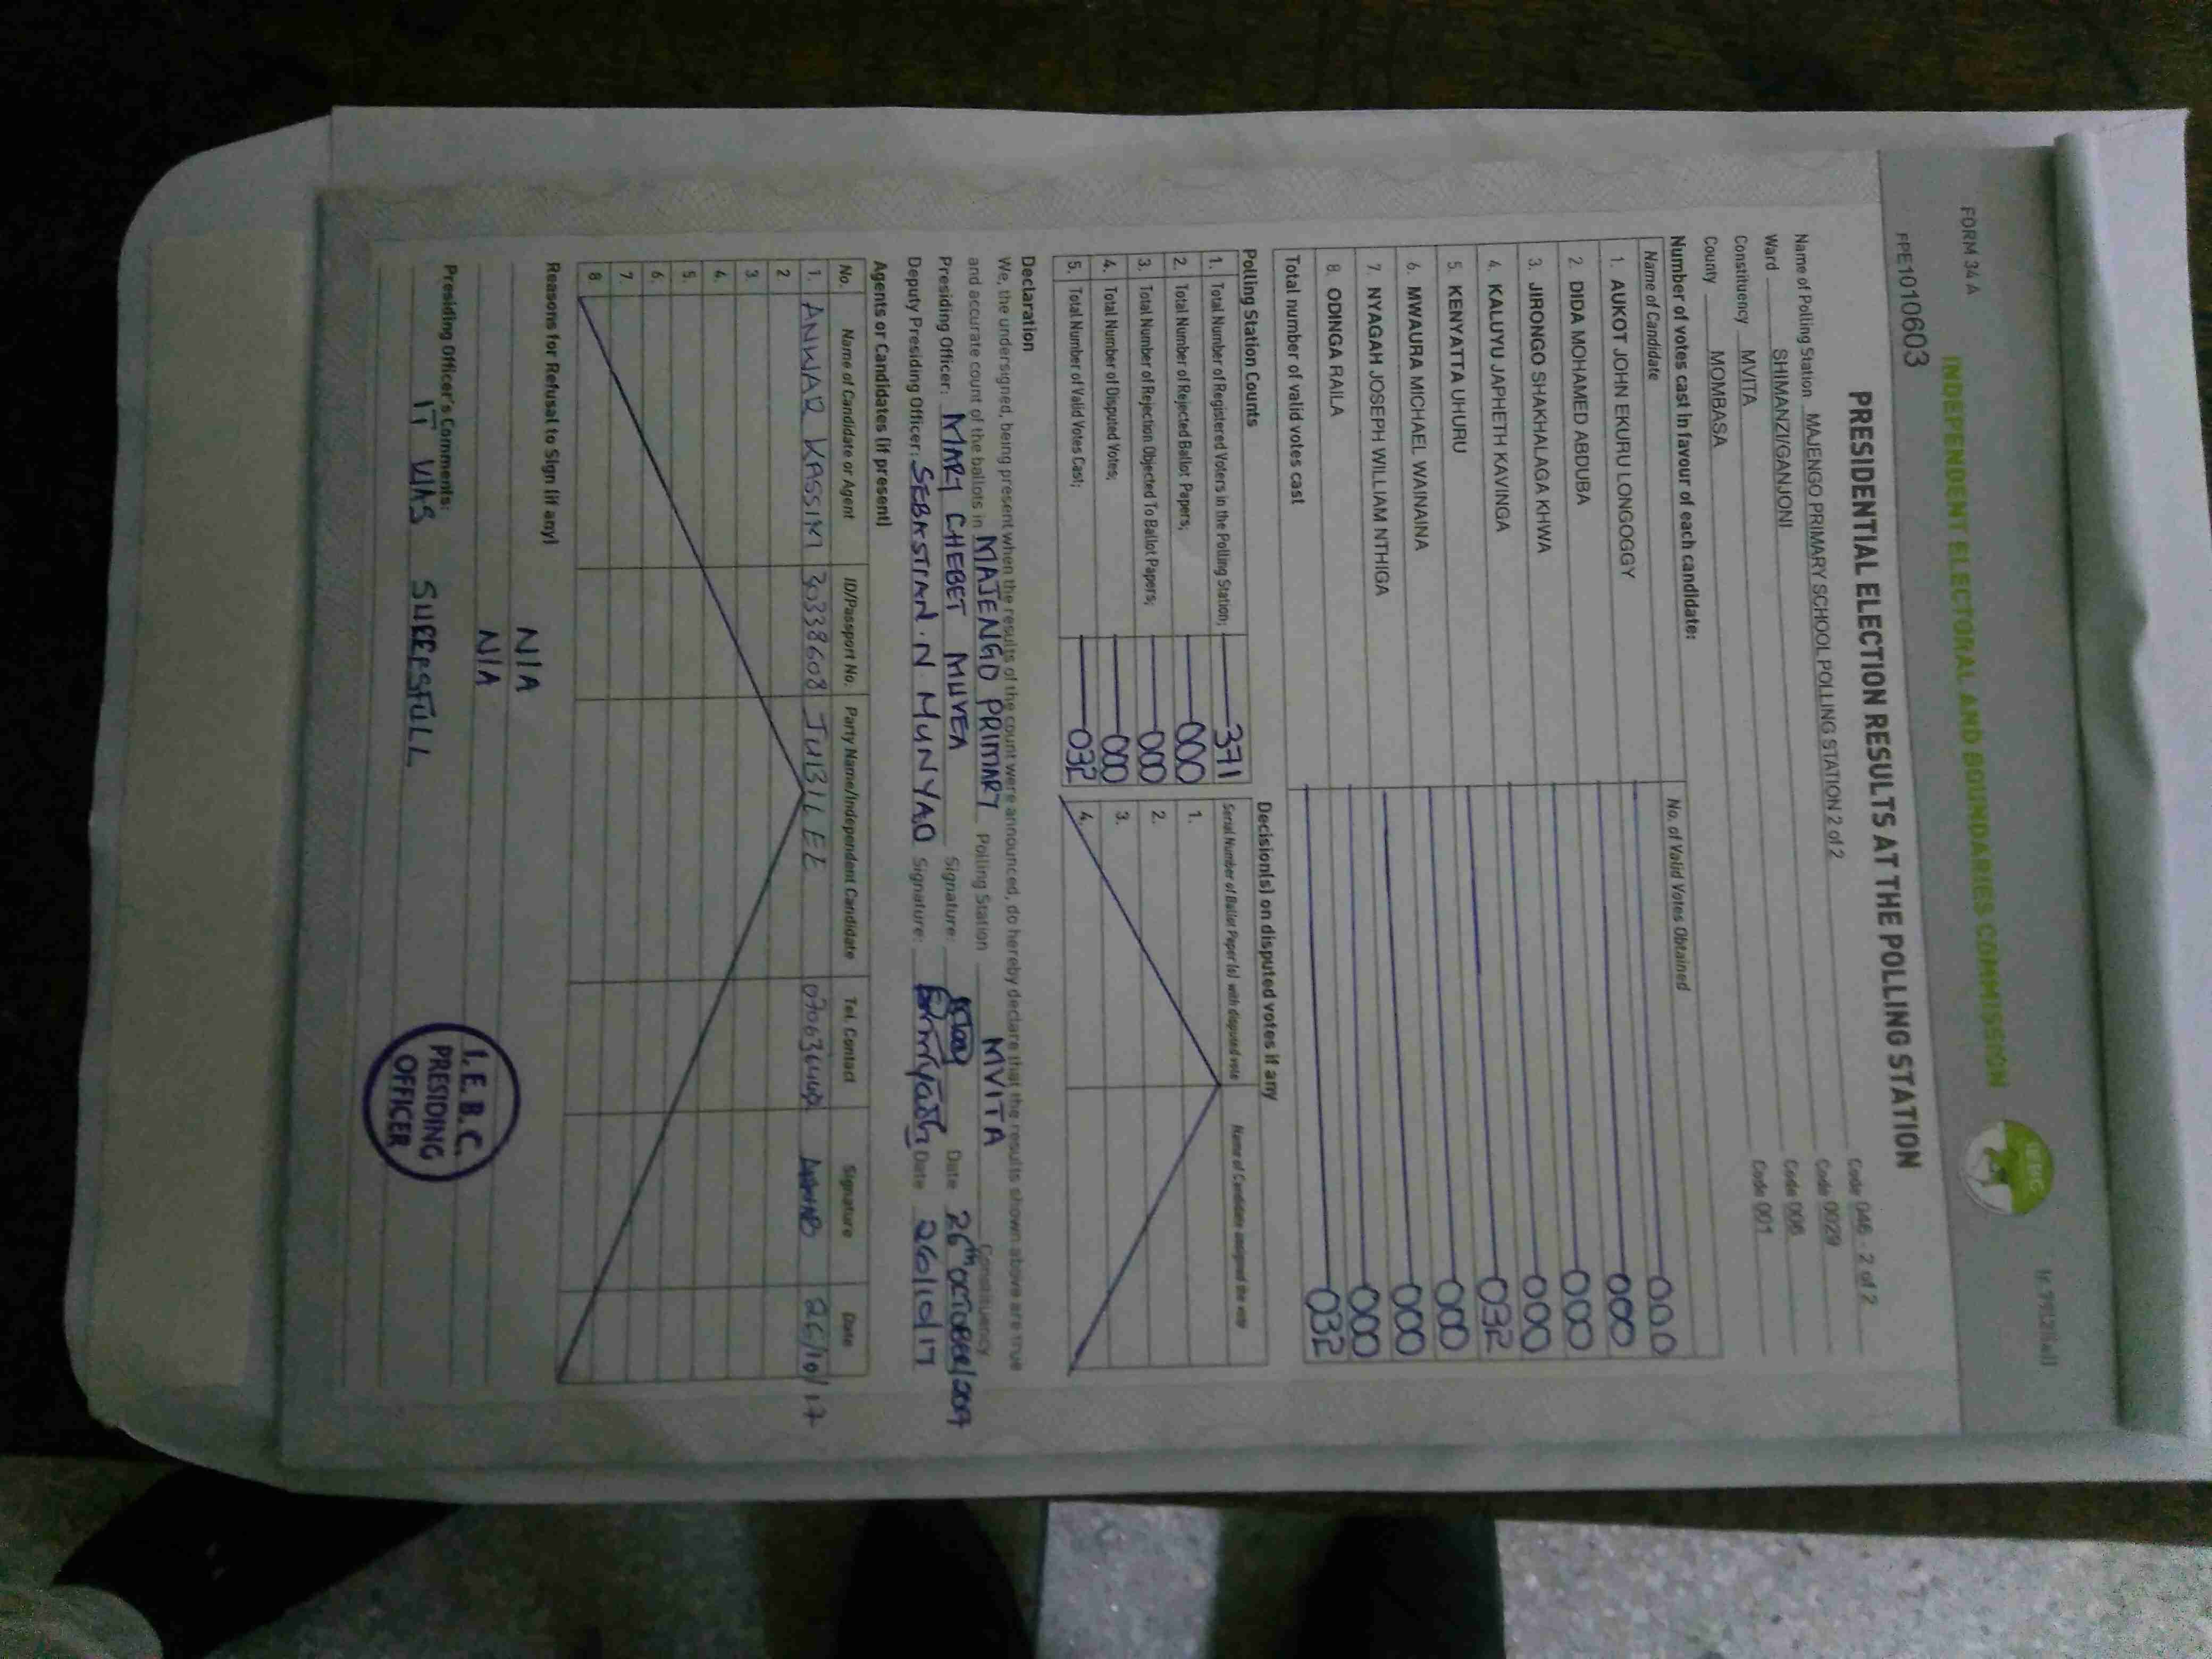 FORM 34 A
INDEPENDENT ELECTORAL AND BOUNDARIES COMMISSION
IEBC
PPE1010603
PRESIDENTIAL ELECTION RESULTS AT THE POLLING STATION
Name of Polling Station MAJENGO PRIMARY SCHOOL POLLING STATION 2 of 2 Code 046 - 2 of 2
Ward SHIMANZI/GANJONI Code 0029
Constituency MVITA Code 006
County MOMBASA Code 001
Number of votes cast in favour of each candidate:
Name of Candidate No. of Valid Votes Obtained
1. AUKOT JOHN EKURU LONGOGGY 000
2. DIDA MOHAMED ABDUBA 000
3. JIRONGO SHAKHALAGA KHWA 000
4. KALUYU JAPHETH KAVINGA 000
5. KENYATTA UHURU 032
6. MWAURA MICHAEL WAINAINA 000
7. NYAGAH JOSEPH WILLIAM NTHIGA 000
8. ODINGA RAILA 000
Total number of valid votes cast 032
Polling Station Counts
1. Total Number of Registered Voters in the Polling Station; 371
2. Total Number of Rejected Ballot Papers; 000
3. Total Number of Rejection Objected To Ballot Papers; 000
4. Total Number of Disputed Votes; 000
5. Total Number of Valid Votes Cast; 032
Decision(s) on disputed votes if any
Serial Number of Ballot Paper (s) with disputed vote Name of Candidate assigned the vote
1.
2.
3.
4.
Declaration
We, the undersigned, being present when the results of the count were announced, do hereby declare that the results shown above are true
and accurate count of the ballots in MAJENGO PRIMARY Polling Station MVITA Constituency
Presiding Officer: MARY CHEBET MUVEA Signature: Date 26th OCTOBER/2017
Deputy Presiding Officer: SEBASTIAN.N MUNYAO Signature: Date 26/10/17
Agents or Candidates (if present)
No. Name of Candidate or Agent ID/Passport No. Party Name/Independent Candidate Tel. Contact Signature Date
1. ANWAR KASSIM 30338608 JUBILEE 26/10/17
2
3.
4.
5.
6.
7.
8
Reasons for Refusal to Sign (if any)
N/A
N/A
Presiding Officer's Comments:
IT WAS SUCCESSFULL
I.E.B.C.
PRESIDING
OFFICER